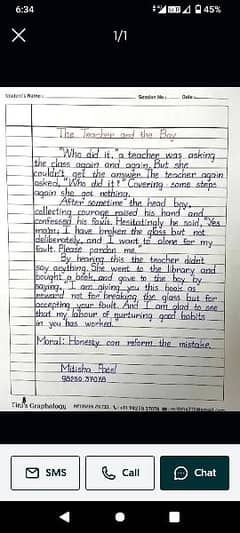 6:34
45%
1/1
Student's Name :
Session No :
Date :
The Teacher and the Boy
"Who did it," a teacher was asking
the class again and again. But she
couldn't get the answer. The teacher again
asked, "Who did it?" Covering some steps
again she got nothing.
After sometime the head boy,
collecting courage raised his hand and
confessed his fault. Hesitatingly he said, "Yes
mam, I have broken the glass but not
deliberately, and I want to alone for my
fault. Please pardon me."
By hearing this the teacher didn't
say anything. She went to the library and
bought a book and gave to the boy by
saying, "I am giving you this book as
reward not for breaking the glass but for
accepting your fault. And I am glad to see
that my labour of nurturing good habits
in you has worked."
Moral: Honesty can reform the mistake.
Midisha Patel
98250 37078
Tinu's Graphology
SMS
Call
Chat